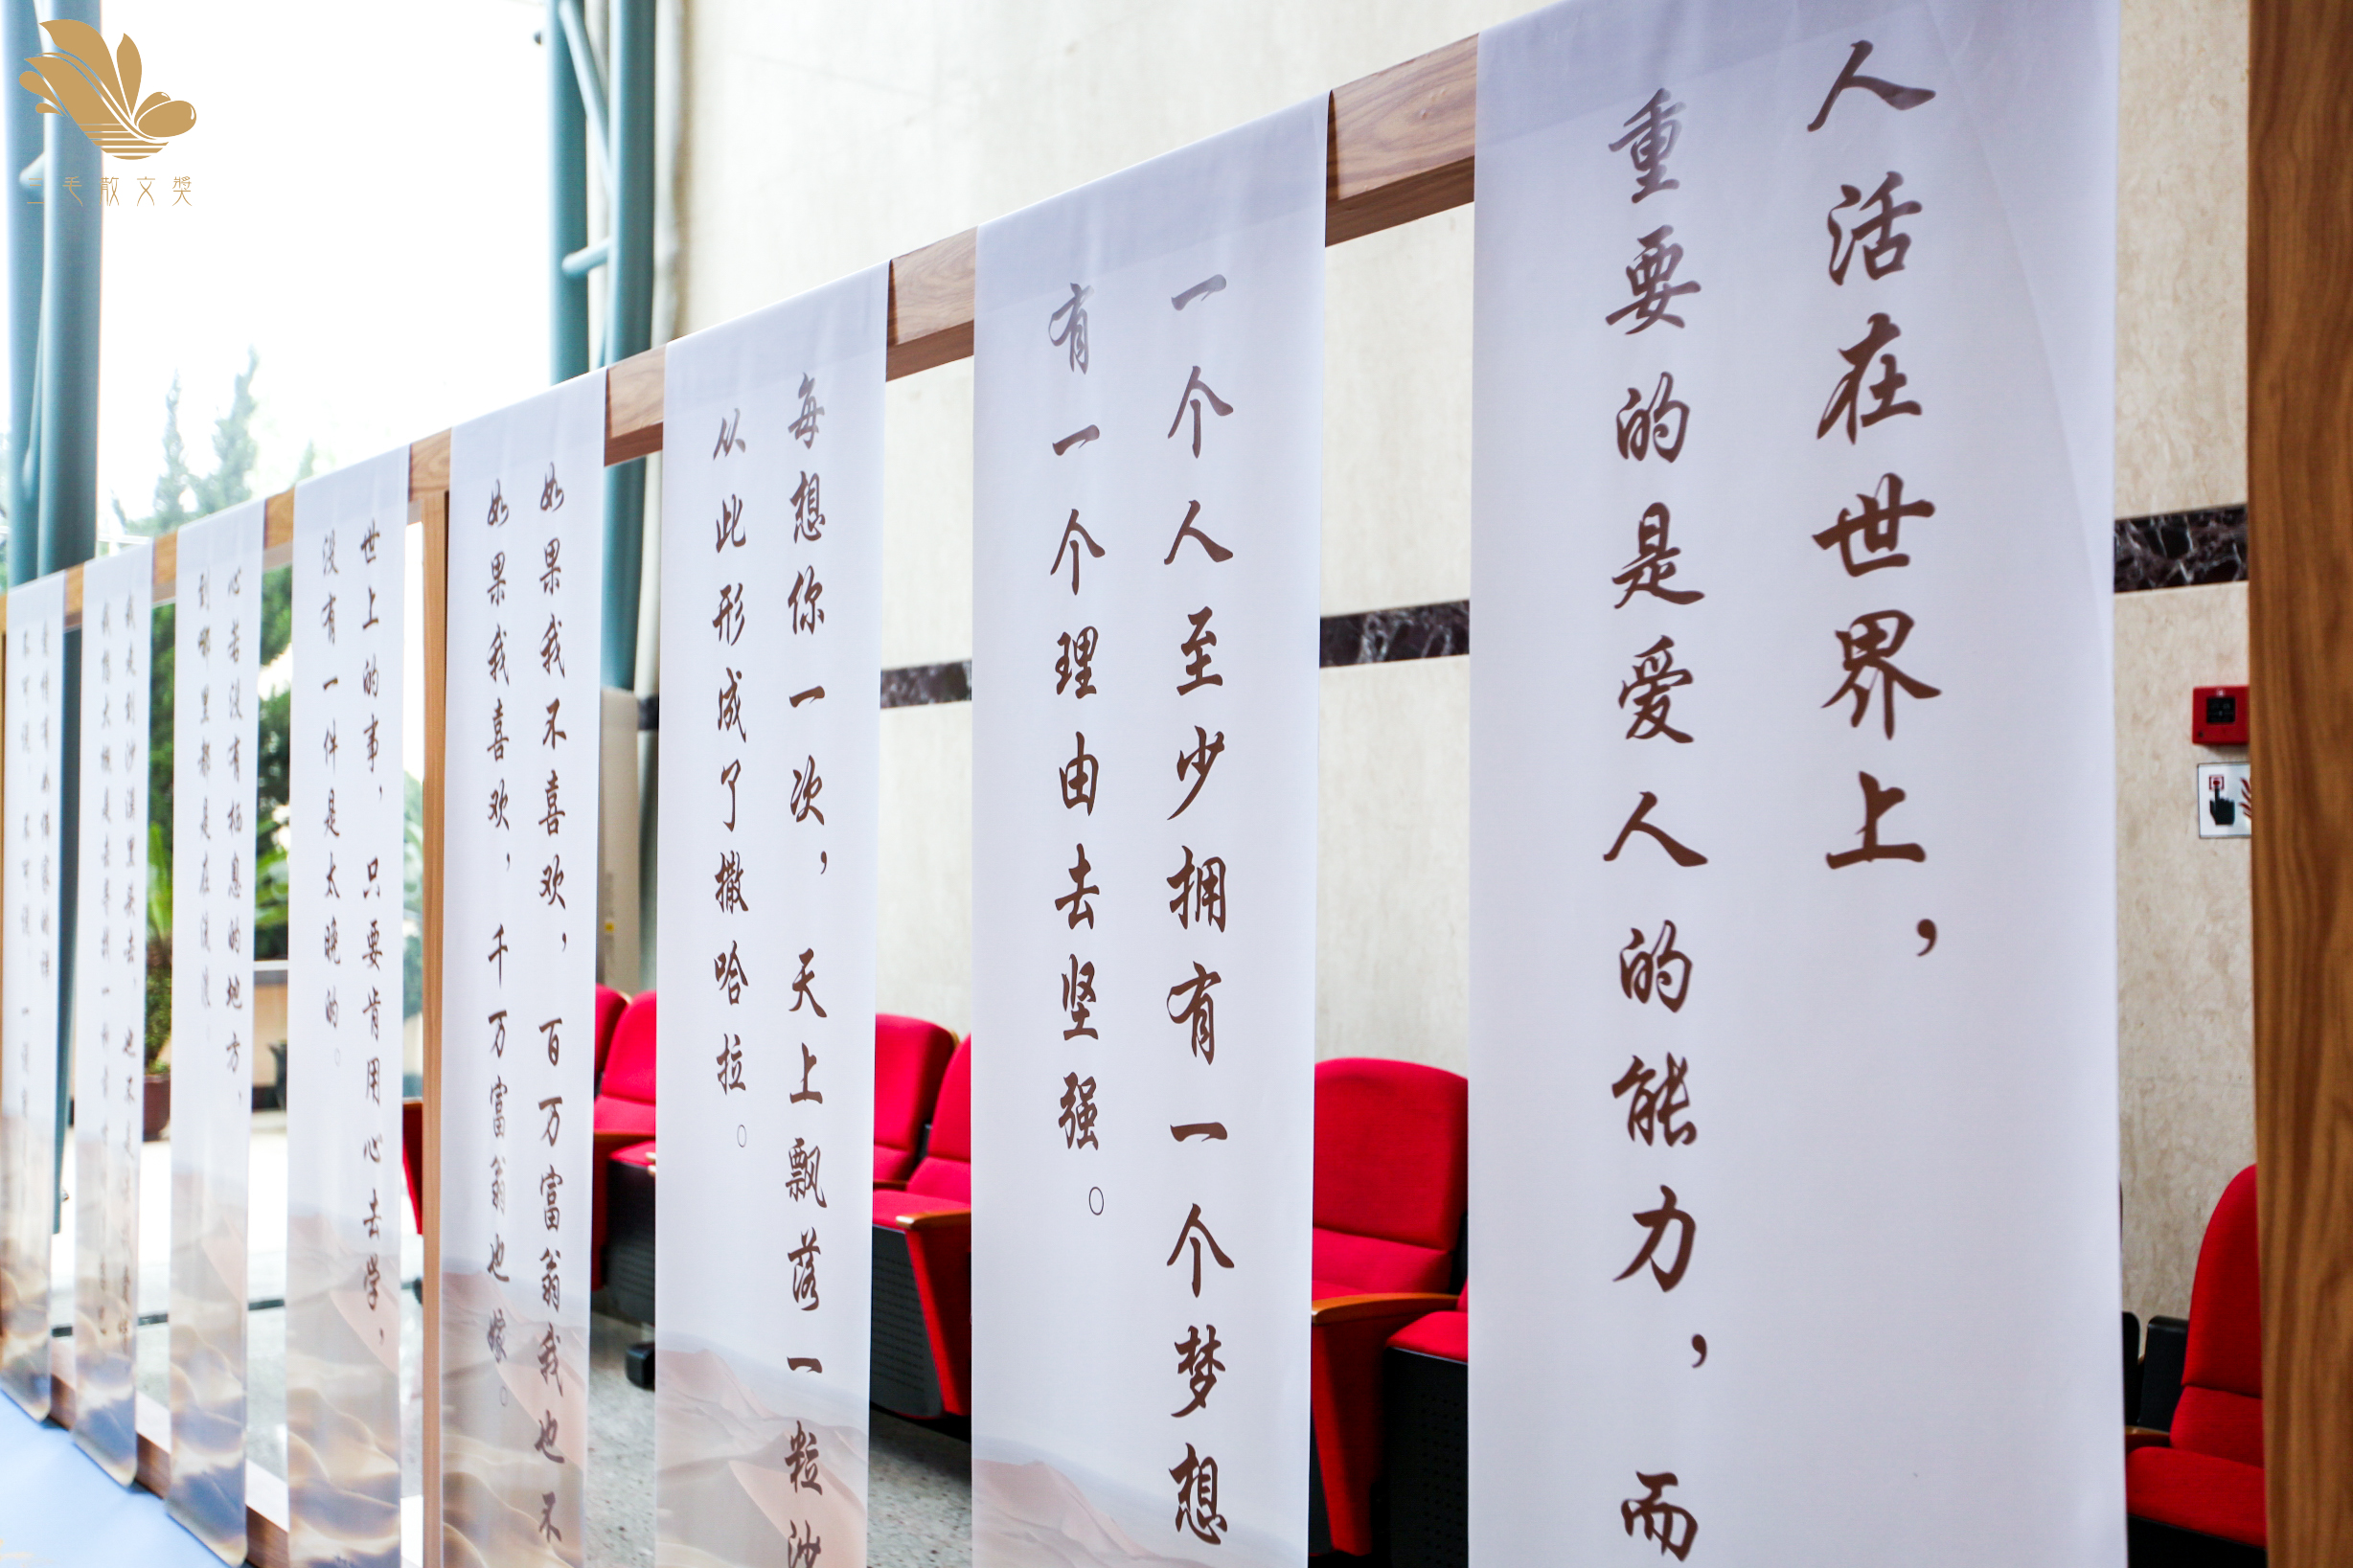 三毛散文獎
人活在世界上，
重要的是爱人的能力，而
一个人至少拥有一个梦想
有一个理由去坚强。
每想你一次，天上飘落一粒沙
从此形成了撒哈拉。
如果我不喜欢，百万富翁我也不
如果我喜欢，千万富翁也嫁。
世上的事，只要肯用心去学，
没有一件是太晚的。
心若没有栖息的地方，
到哪里都是在流浪